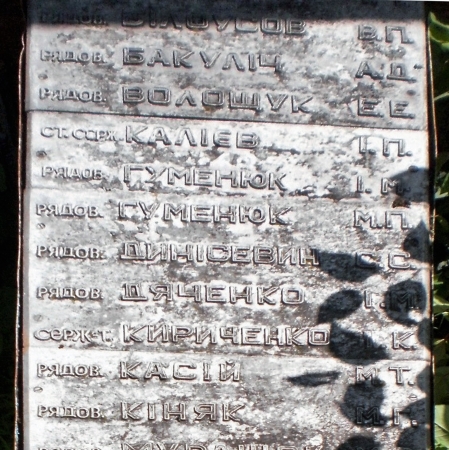 БІЛОУСОВ В.П.
РЯДОВ. БАКУЛІЧ А.Д.
РЯДОВ. ВОЛОЩУК Е.Е.
СТ. СЕРЖ. КАЛІЄВ І.П.
РЯДОВ. ГУМЕНЮК І.М.
РЯДОВ. ГУМЕНЮК М.П.
РЯДОВ. ДИНІСЕВИЧ С.С.
РЯДОВ. ДЯЧЕНКО
СЕРЖ-Т. КИРИЧЕНКО І.К.
РЯДОВ. КАСІЙ М.Т.
РЯДОВ. КІНЯК